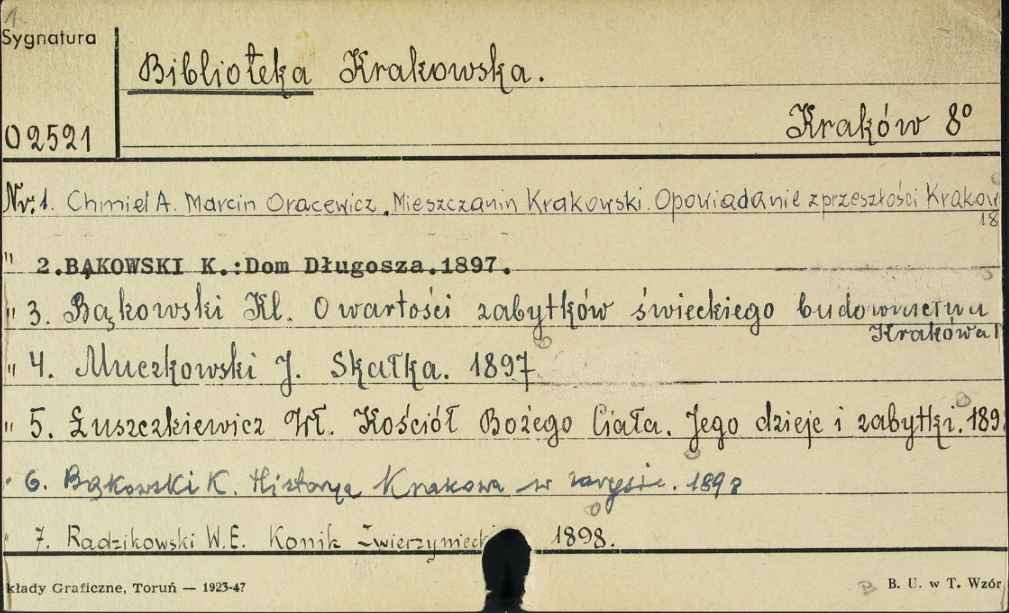 1.
Sygnatura
Biblioteka Krakowska.
02521
Kraków 8°
Nr. 1. Chmiel A. Marcin Oracewicz. Mieszczanin Krakowski. Opowiadanie z przeszłości Krakow
18
" 2. BĄKOWSKI K.:Dom Długosza.1897.
" 3. Bąkowski Kl. O wartości zabytków świeckiego budownictwa
Krakowa
" 4. Muczkowski J. Skałka. 1897
" 5. Łuszczkiewicz Wł. Kościół Bożego Ciała. Jego dzieje i zabytki. 189
" 6. Bąkowski K. Historya Krakowa w zarysie. 1898
7. Radzikowski W.E. Konik Zwierzynieck 1898.
kłady Graficzne, Toruń — 1923-47
B. U. w T. Wzór